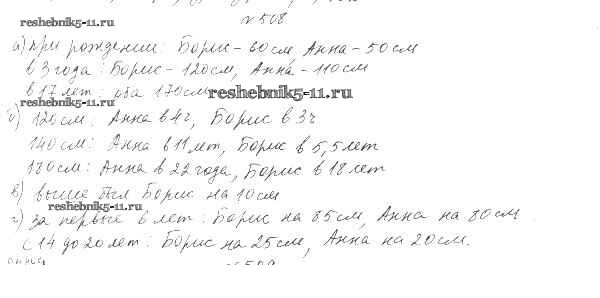 reshebnik5-11.ru
№508
а) при рождении: Борис - 60 см, Анна - 50 см
в 3 года: Борис - 120 см, Анна - 110 см
в 17 лет: оба 170 см
reshebnik5-11.ru
reshebnik5-11.ru
б) 120 см: Анна в 4 г, Борис в 3 г
140 см: Анна в 11 лет, Борис в 5,5 лет
180 см: Анна в 22 года, Борис в 18 лет
в) выше был Борис на 10 см
reshebnik5-11.ru
г) за первые 8 лет: Борис на 85 см, Анна на 80 см.
с 14 до 20 лет: Борис на 25 см, Анна на 20 см.
reshebnik5-11.ru